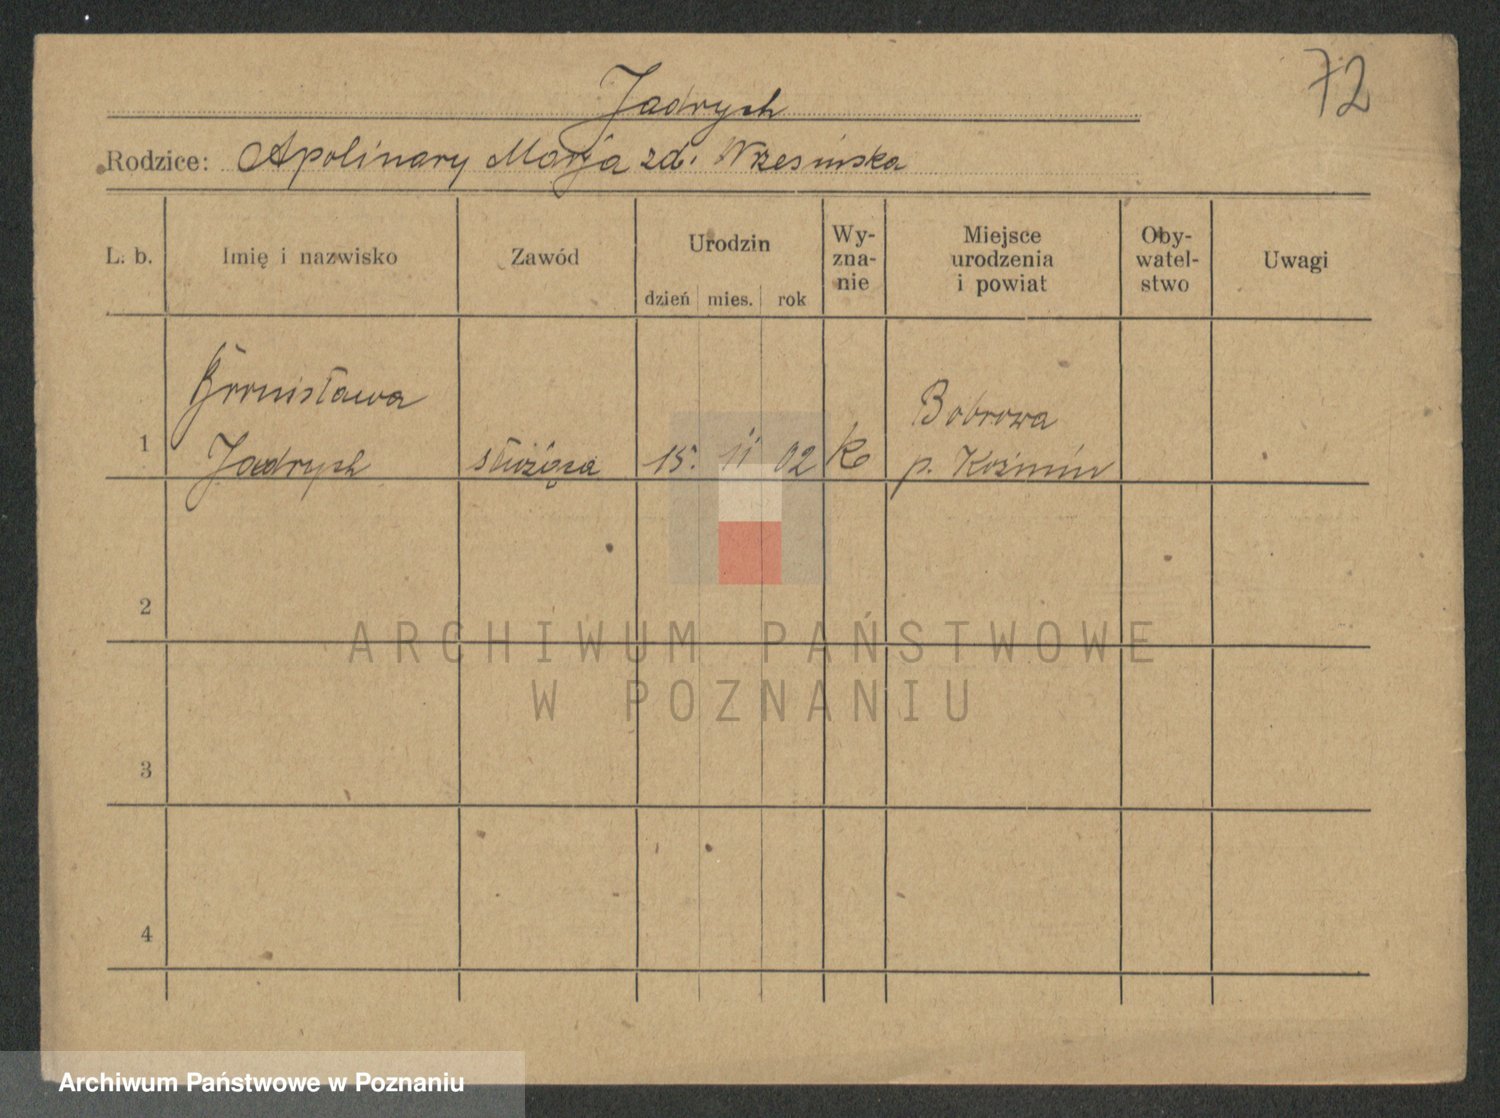 72
Jadrych
Rodzice: Apolinary Marja zd. Wrzesińska
L. b. Imię i nazwisko Zawód Urodzin Wy-zna-nie Miejsce urodzenia i powiat Oby-watel-stwo Uwagi
dzień mies. rok
Bronisława
1 Jadrych służąca 15. 11 02 k Bobrowa
p. Koźmin
2
3
4
ARCHIWUM PAŃSTWOWE
W POZNANIU
Archiwum Państwowe w Poznaniu